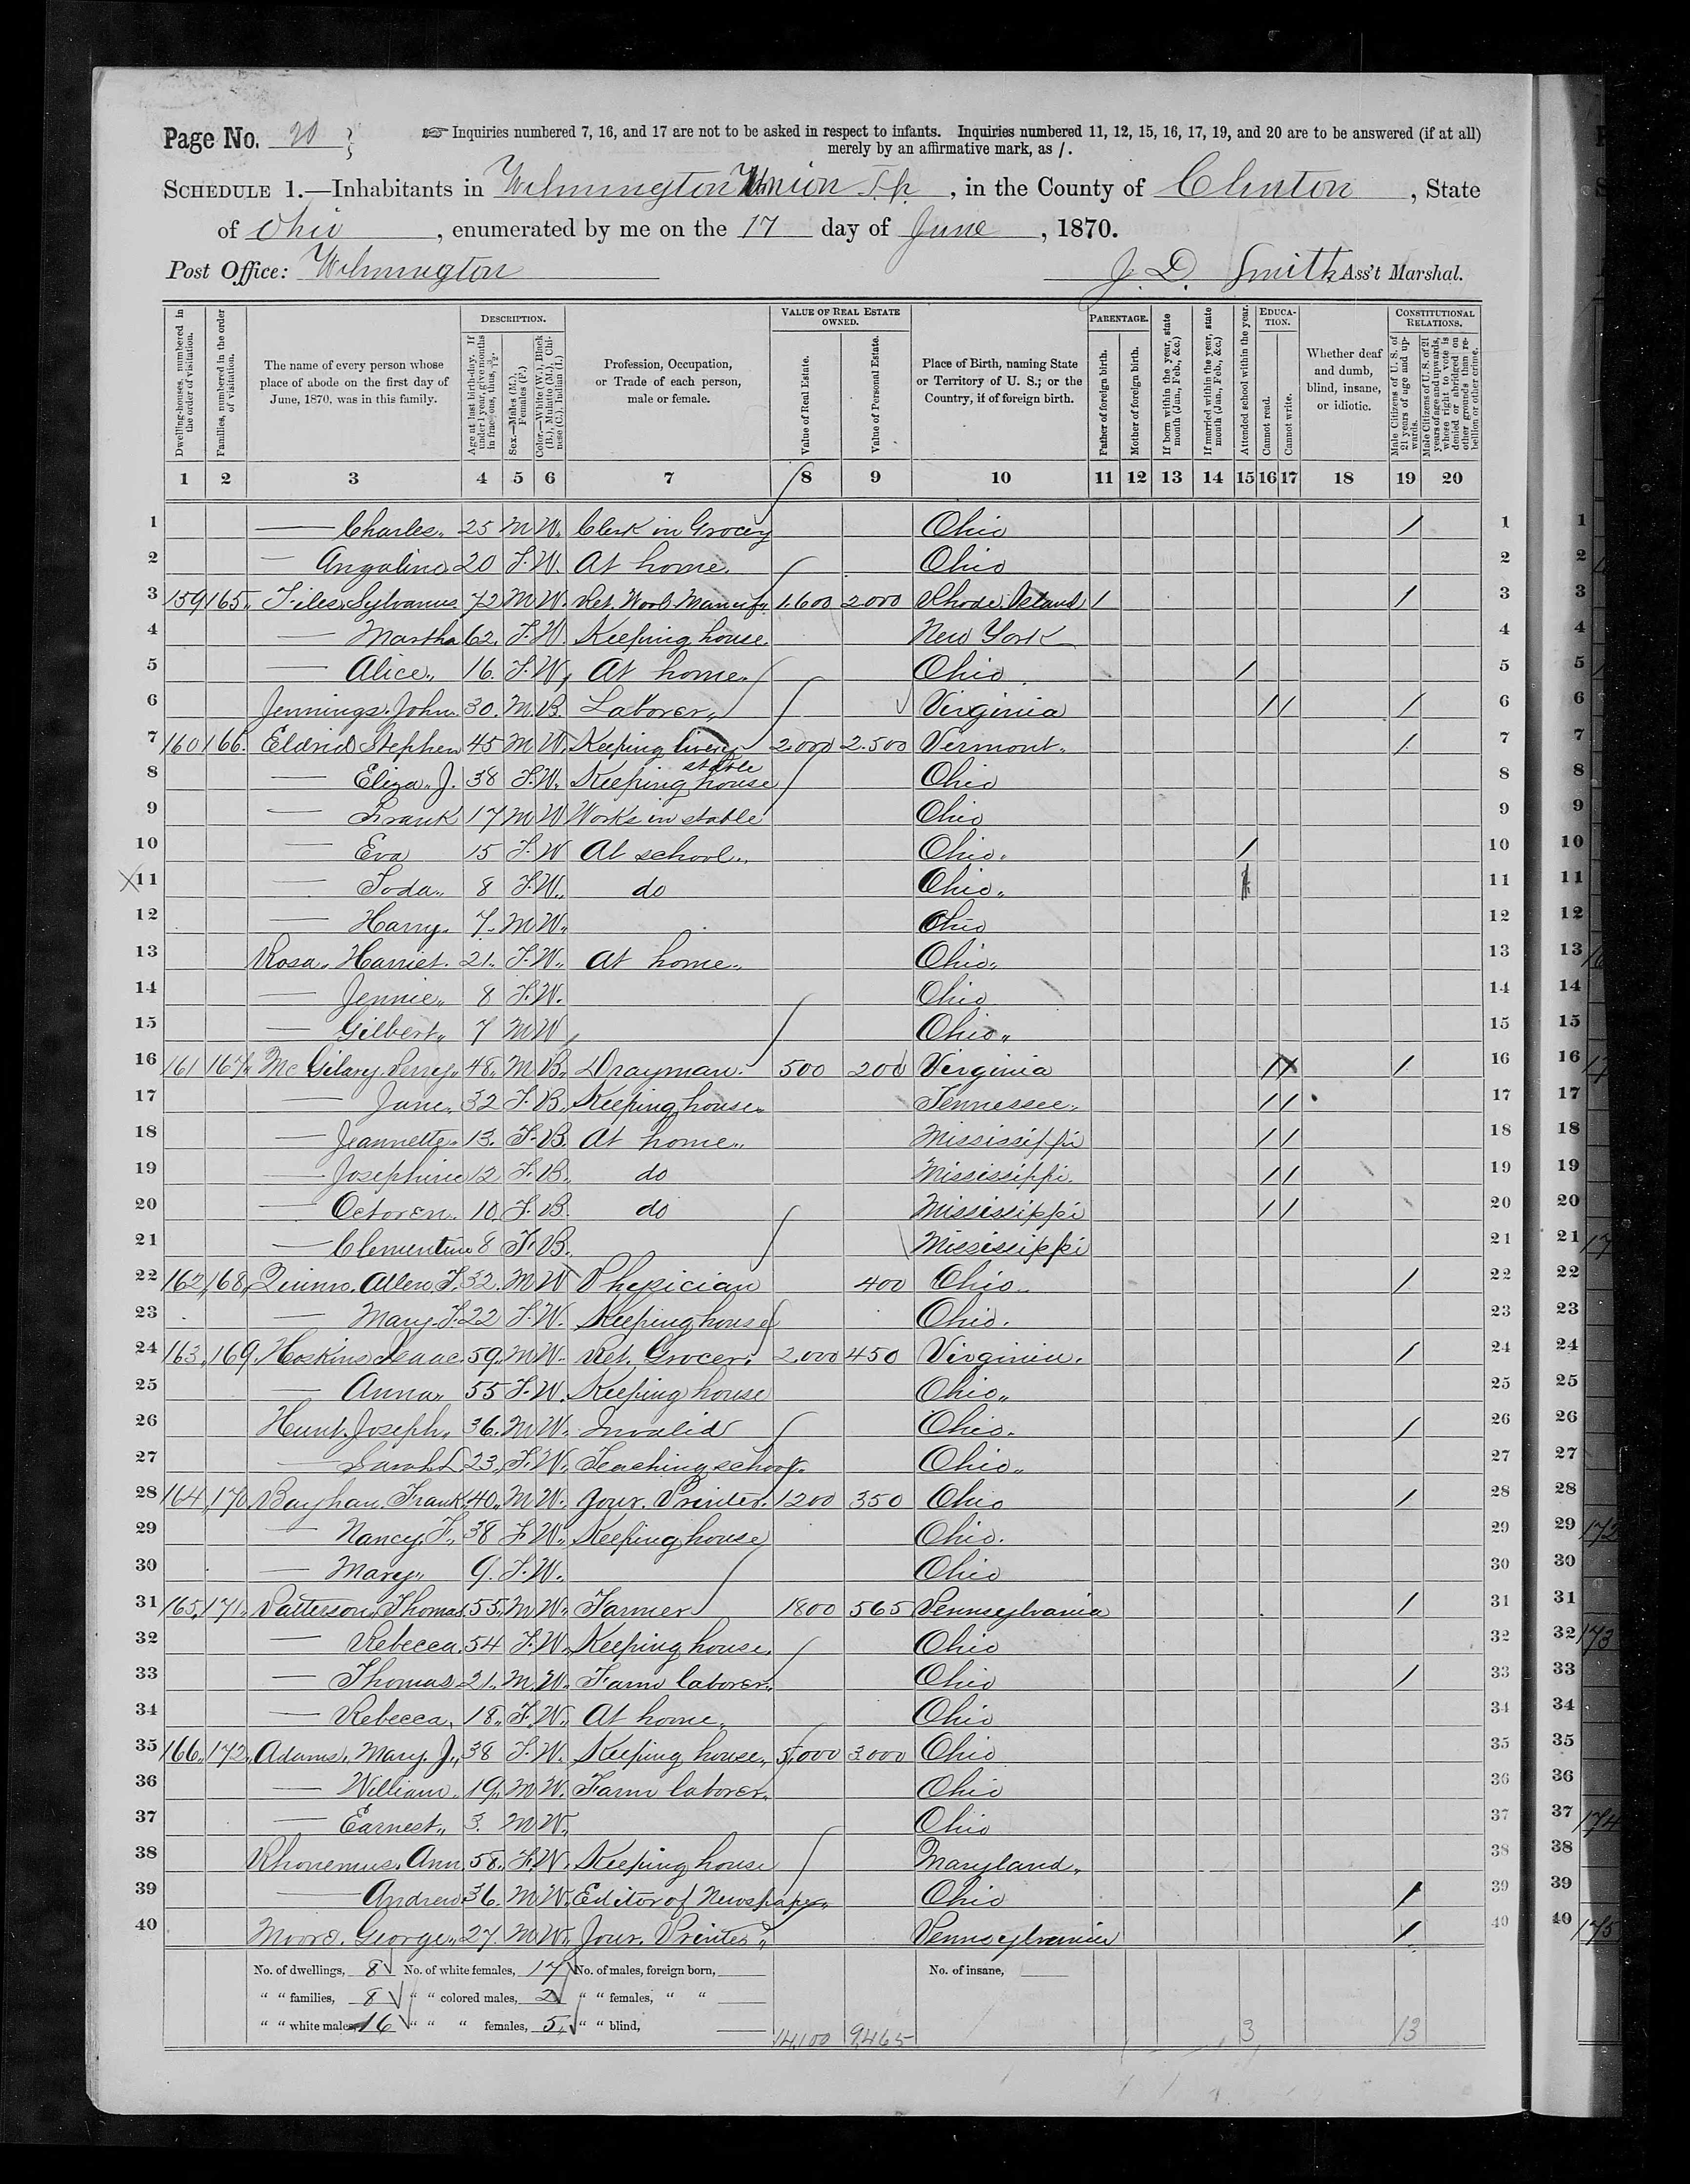 Page No. 20 ☞ Inquiries numbered 7, 16, and 17 are not to be asked in respect to infants. Inquiries numbered 11, 12, 15, 16, 17, 19, and 20 are to be answered (if at all)
merely by an affirmative mark, as /.
SCHEDULE 1.—Inhabitants in Wilmington Union T.p. , in the County of Clinton , State
of Ohio , enumerated by me on the 17 day of June , 1870.
Post Office: Wilmington J. D. Smith Ass't Marshal.
Dwelling-houses, numbered in the order of visitation.
Families, numbered in the order of visitation.
The name of every person whose place of abode on the first day of June, 1870, was in this family.
DESCRIPTION.
Age at last birth-day. If under 1 year, give months in fractions, thus, 3/12.
Sex.—Males (M.), Females (F.)
Color.—White (W.), Black (B.), Mulatto (M.), Chinese (C.), Indian (I.)
Profession, Occupation, or Trade of each person, male or female.
VALUE OF REAL ESTATE OWNED.
Value of Real Estate.
Value of Personal Estate.
Place of Birth, naming State or Territory of U. S.; or the Country, if of foreign birth.
PARENTAGE.
Father of foreign birth.
Mother of foreign birth.
If born within the year, state month (Jan., Feb., &c.)
If married within the year, state month (Jan., Feb., &c.)
Attended school within the year.
EDUCATION.
Cannot read.
Cannot write.
Whether deaf and dumb, blind, insane, or idiotic.
CONSTITUTIONAL RELATIONS.
Male Citizens of U. S. of 21 years of age and upwards.
Male Citizens of U. S. of 21 years of age and upwards, whose right to vote is denied or abridged on other grounds than rebellion or other crime.
1 2 3 4 5 6 7 8 9 10 11 12 13 14 15 16 17 18 19 20
1 — Charles 25 M W. Clerk in Grocery Ohio / 1
2 — Angaline 20 F. W. At home. Ohio 2
3 159 165 Files Sylvanus 72 M W. Ret. Wool Manuf. 1,600 2000 Rhode Island / / 3
4 — Martha 62. F. W. Keeping house. New York 4
5 — Alice 16. F. W. At home. Ohio / 5
6 Jennings. John. 30. M. B. Laborer Virginia / / / 6
7 160 166. Eldrid Stephen 45 M W. Keeping livery stable 2.000 2.500 Vermont / 7
8 — Eliza. J. 38 F. W. Keeping house Ohio 8
9 — Frank 17 M W Works in stable Ohio 9
10 — Eva 15 F. W At school Ohio. / 10
11 — 8 F. W. do Ohio / 11
12 — Harry. 7. M W. Ohio 12
13 Rosa. Harriet. 21. F. W. At home Ohio 13
14 — Jennie 8 F. W. Ohio 14
15 — Gilbert 7 M W Ohio 15
16 161 167 Mc Gilary. Perry 48 M B. Drayman. 500 200 Virginia / / / 16
17 — Jane 32 F. B. Keeping house Tennessee / / 17
18 — Jeannette 13. F. B. At home Mississippi / / 18
19 — Josephine 12 F. B. do Mississippi. / / 19
20 — Octoren. 10. F. B. do Mississippi / / 20
21 — Clementine 8 F. B. Mississippi 21
22 162 168 Quinn. Allen. F. 32. M W Physician 400 Ohio / 22
23 — Mary. F. 22 F. W. Keeping house Ohio. 23
24 163 169. Hoskins Isaac. 59 M W. Ret. Grocer. 2.000 450 Virginia. / 24
25 — Anna 55 F. W. Keeping house Ohio 25
26 Hunt. Joseph 36. M W. Invalid Ohio. / 26
27 — Sarah L 23. F. W. Teaching school. Ohio 27
28 164 170 Bayhan. Frank 40 M W. Jour. Printer. 1200 350 Ohio / 28
29 — Nancy. F. 38 F W. Keeping house Ohio. 29
30 — Mary 9. F. W. Ohio 30
31 165 171 Patterson Thomas. 55 M W. Farmer 1800 565 Pennsylvania / 31
32 — Rebecca. 54 F. W. Keeping house. Ohio 32
33 — Thomas. 21. M. W. Farm laborer Ohio / 33
34 — Rebecca. 18 F. W. At home Ohio 34
35 166 172 Adams. Mary. J. 38 F. W. Keeping house. 5,000 3.000 Ohio 35
36 — William. 19 M W. Farm laborer. Ohio 36
37 — Earnest 3. M W. Ohio 37
38 Rhonemus. Ann. 58. F. W. Keeping house Maryland 38
39 — Andrew. 36. M W. Editor of Newspaper Ohio / 39
40 Moore. George 27. M W. Jour. Printer Pennsylvania / 40
No. of dwellings, 8 No. of white females, 17 No. of males, foreign born, No. of insane,
" " families, 8 " " colored males, 2 " " females, " "
" " white males, 16 " " " females, 5 " " blind, 14,100 9,465 3 13